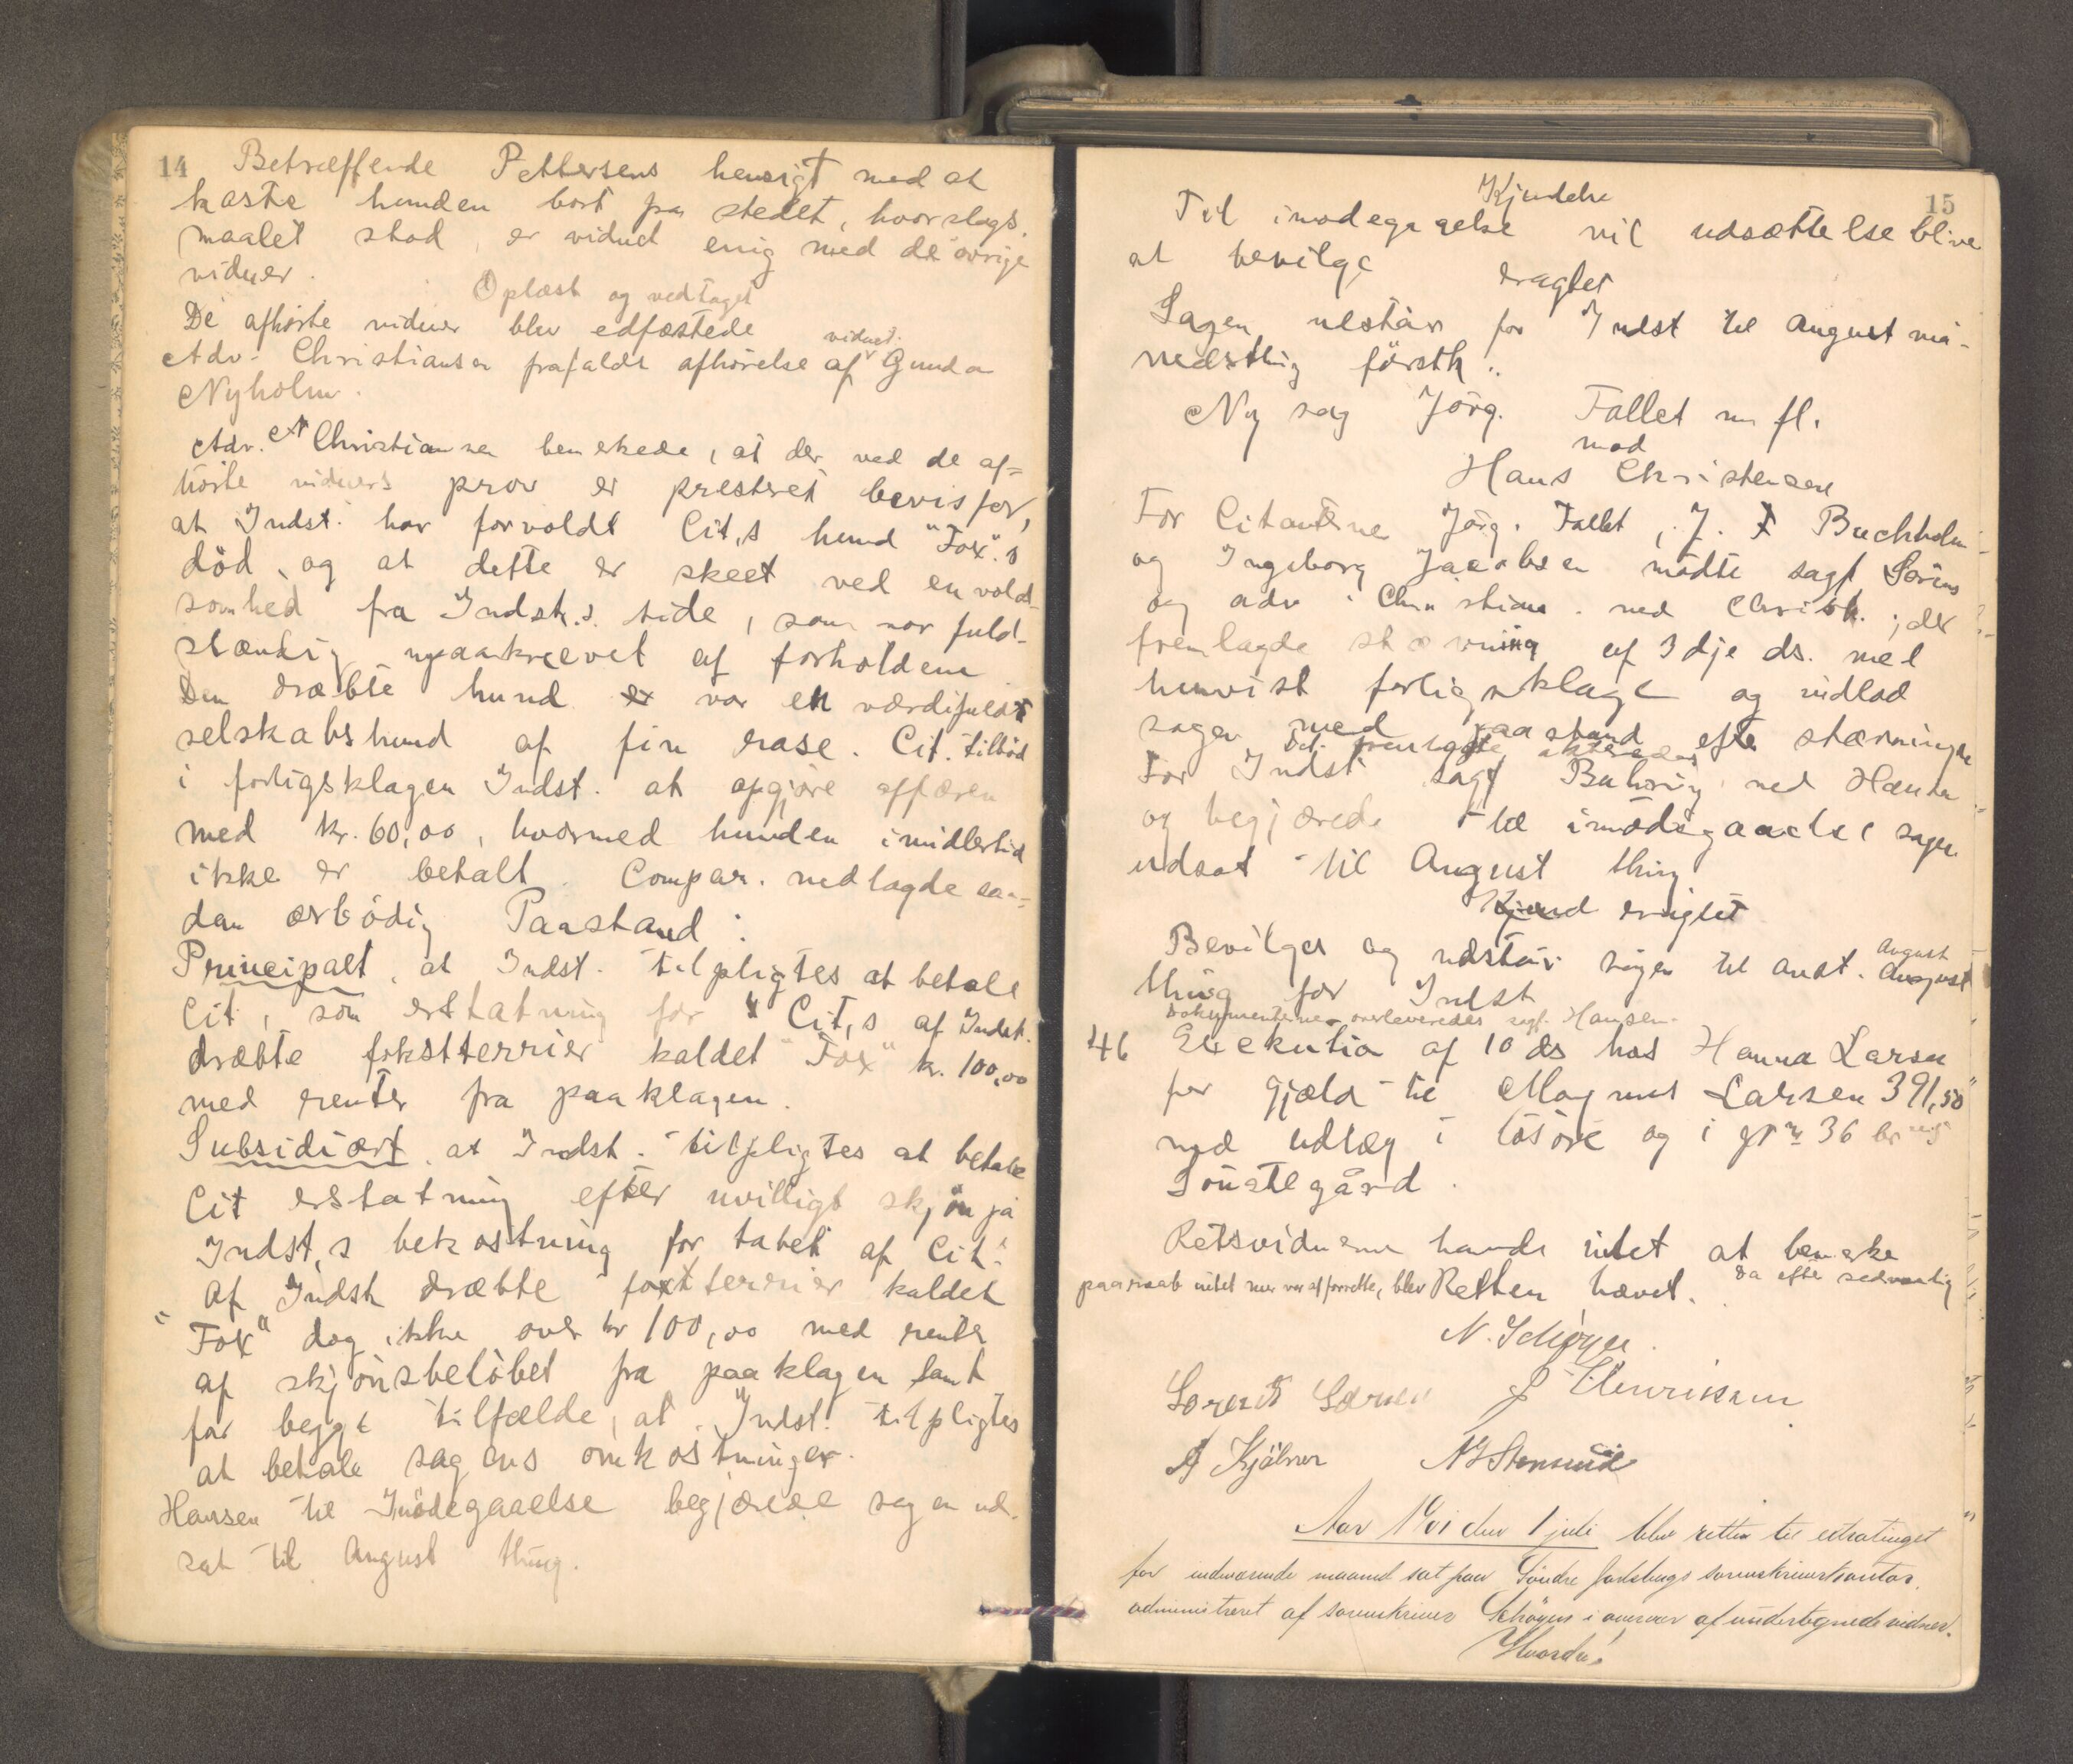 14 Betræffende Pettersens hensigt med at
kaste hunden bort paa stedet, hvor slags-
maalet stod, er vidnet enig med de øvrige
vidner.
Oplæst og vedtaget
De afhörte vidner blev edfæstede
Adv. Christiansen frafaldt afhörelse af vidnet Gunda
Nyholm.
Adv. Christiansen bemerkede, at der ved de af-
hörte vidners prov er presteret bevis for,
at Indst. har forvoldt Cit,s hund "Fox".s
död, og at dette er skeet ved en vold-
somhed fra Indst.s side, som var fuld-
stændig upaakrævet af forholdene
Den dræbte hund er var en værdifuldt
selskabshund af fin rase. Cit. tilböd
i forligsklagen Indst. at opgjöre affæren
med kr. 60,00, hvormed hunden imidlertid
ikke er betalt. Compar. nedlagde saa-
dan ærbödig Paastand:
Principalt, at Indst. tilpligtes at betale
Cit, som erstatning for Cit,s af Indst.
dræbte fokstterrier kaldet "Fox" kr. 100,00
med renter fra paaklagen.
Subsidiært, at Indst. tilpligtes at betale
Cit erstatning efter uvilligt skjön på
Indst,s bekostning for tabet af Cit.
af Indst dræbte foxtterrier kaldet
"Fox" dog ikke over kr 100,00 med renter
af skjönsbelöbet fra paaklagen samt
for begge tilfælde, at Indst. tilpligtes
at betale sagens omkostninger.
Hansen til Imödegaaelse begjærede sagen ud-
sat til August thing.
15
Kjendelse
Til imödegaaelse vil udsættelse blive
at bevilge
eragtet
Sagen utstår for Indst til August må-
nedsthing förstk.
Ny sag Jörg. Fallet m fl.
mod
Hans Christensen
For Citanterne Jörg. Fallet, J. F Buchholm
og Ingeborg Jacobsen mödte sagf Sörens
og adv. Christians. ved Christ. ; der
fremlagde stævning af 3dje ds. med
henvist forligsklage og indlod
sagen med paastand efter stævningen
Det fremlagte akteredes
For Indst sagf Buhring ved Hansen
og begjærede til imödegaaelse sagen
udsat til August thing
Kjend eragtet
Bevilges og udstår sagen til anst. August August
thing for Indst
Dokumenterne overleveredes sagf. Hansen.
46 Exekution af 10 ds hos Hanna Larsen
for gjæld til Magnus Larsen 391,50
med udlæg i lösöre og i gr nr 36 br nr 5
Sönstegård.
Retsvidnerne havde intet at bemerke
Da efter sedvanlig
paaraab intet mer var at forrette, blev Retten hævet.
N. Schöyen.
Sorent Sörnsen J Henriksen
A Kjölner N J Stensrud
Aar 1901 den 1 juli blev retten til extratinget
for indeværende maaned sat paa Söndre Jarlsbergs sorenskriverkontor,
administreret af sorenskriver Schöyen i overvær af undertegnede vidner.
Hvorda: